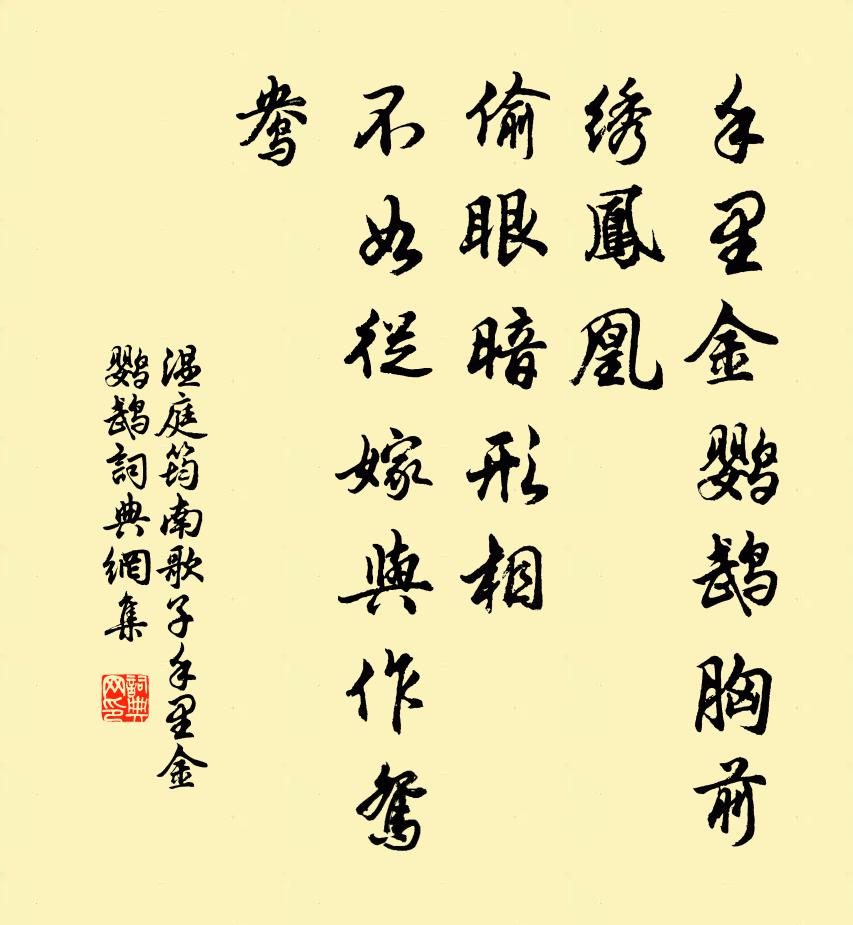 手里金鹦鹉胸前
绣鳳凰
偷眼暗形相
不如從嫁與作鴛
鴦
温庭筠南歌子手里金
鹦鹉詞典網集
詞典
网印